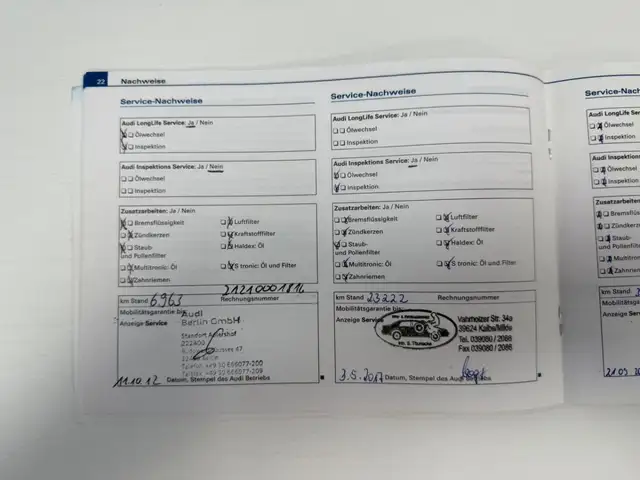 22 Nachweise
Service-Nachweise
Audi LongLife Service: Ja / Nein
Ölwechsel
Inspektion
Audi Inspektions Service: Ja / Nein
Ölwechsel
Inspektion
Zusatzarbeiten: Ja / Nein
Bremsflüssigkeit
Luftfilter
Zündkerzen
Kraftstofffilter
Staub-
und Pollenfilter
Haldex: Öl
Multitronic: Öl
S tronic: Öl und Filter
Zahnriemen
21210001816
km Stand 6963 Rechnungsnummer
Mobilitätsgarantie bis
Anzeige Service
Audi
Berlin GmbH
11.10.12 Datum, Stempel des Audi Betriebs
Service-Nachweise
Audi LongLife Service: Ja / Nein
Ölwechsel
Inspektion
Audi Inspektions Service: Ja / Nein
Ölwechsel
Inspektion
Zusatzarbeiten: Ja / Nein
Bremsflüssigkeit
Luftfilter
Zündkerzen
Kraftstofffilter
Staub-
und Pollenfilter
Haldex: Öl
Multitronic: Öl
S tronic: Öl und Filter
Zahnriemen
km Stand 23222 Rechnungsnummer
Mobilitätsgarantie bis
Anzeige Service
39624 Kalbe/Milde
Tel. 039080 / 2088
Fax 039080 / 2086
3.5.2017 Datum, Stempel des Audi Betriebs
Service-Nach
Audi LongLife
Ölwechsel
Inspektion
Audi Inspektion
Ölwechsel
Inspektion
Zusatzarbeiten
Bremsflüssig
Zündkerzen
Staub-
und Pollenfilter
Multitronic: Ö
Zahnriemen
km Stand
Mobilitätsgarantie
Anzeige Service